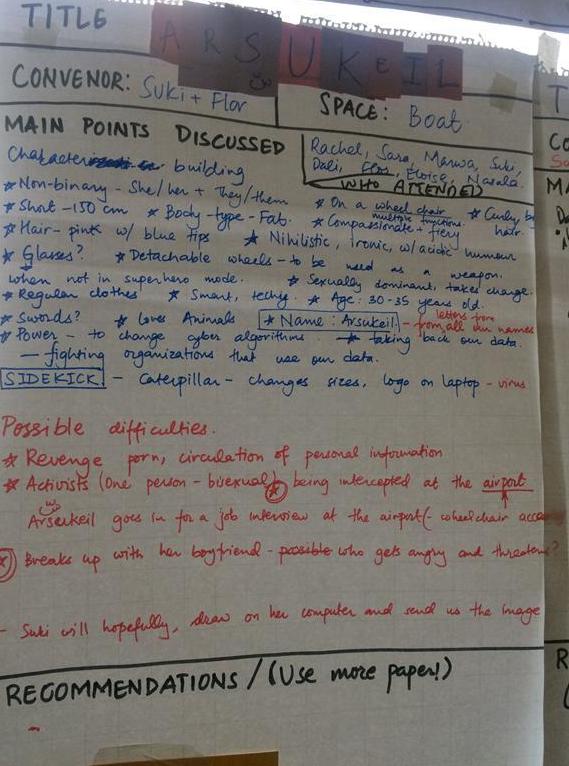 TITLE
ARSUKEIL
CONVENOR: Suki + Flor
SPACE: Boat
MAIN POINTS DISCUSSED
Rachel, Sara, Marwa, Suki,
Dali, Flor, Eloise, Navala.
WHO ATTENDED
Character building
* Non-binary - She/her + They/them
* On a wheel chair
multiple functions
* Curly, big
hair.
* Short - 150 cm * Body-type - Fat.
* Compassionate + fiery
* Hair - pink w/ blue tips * Nihilistic, ironic, w/ acidic humour
* Glasses? * Detachable wheels - to be used as a weapon.
when not in superhero mode. * Sexually dominant, takes charge.
* Regular clothes * Smart, techy. * Age: 30-35 years old.
* Swords? * Loves Animals * Name: Arsukeil - letters from
from all our names
* Power - to change cyber algorithms. * taking back our data.
- fighting organizations that use our data.
SIDEKICK - Caterpillar - changes sizes, logo on laptop - virus
Possible difficulties.
* Revenge porn, circulation of personal information
* Activists (One person - bisexual) * being intercepted at the airport
Arsukeil goes in for a job interview at the airport (- wheelchair
* Breaks up with her boyfriend - possible who gets angry and threatens?
- Suki will hopefully, draw on her computer and send us the image
RECOMMENDATIONS / (Use more paper!)